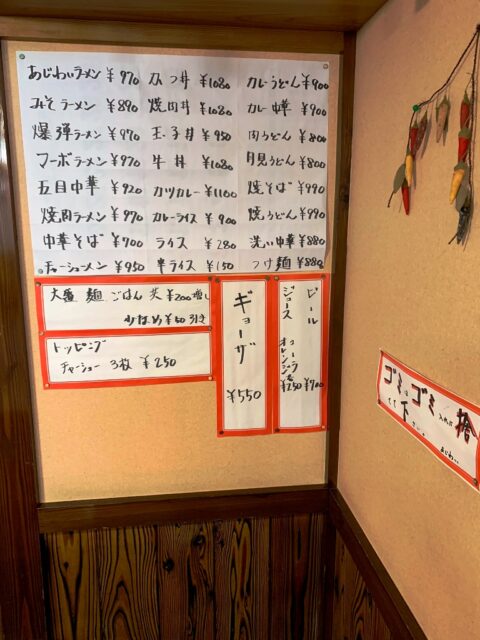 あじわいラーメン ¥970
みそラーメン ¥890
爆弾ラーメン ¥970
マーボラーメン ¥970
五目中華 ¥920
焼肉ラーメン ¥970
中華そば ¥700
チャーシューメン ¥950
カツ丼 ¥1080
焼肉丼 ¥1080
玉子丼 ¥950
牛丼 ¥1080
カツカレー ¥1100
カレーライス ¥900
ライス ¥280
半ライス ¥150
カレーうどん ¥900
カレー中華 ¥900
肉うどん ¥800
月見うどん ¥800
焼そば ¥990
焼うどん ¥990
洗い中華 ¥880
つけ麺 ¥880
大盛 麺 ごはん 共 ¥200増し
少なめ ¥50引き
トッピング
チャーシュー 3枚 ¥250
ギョーザ ¥550
ビール ¥700
ジュース コーラ オレンジ ¥250
ゴミはゴミ入れに
捨てて下さい。
あじわい